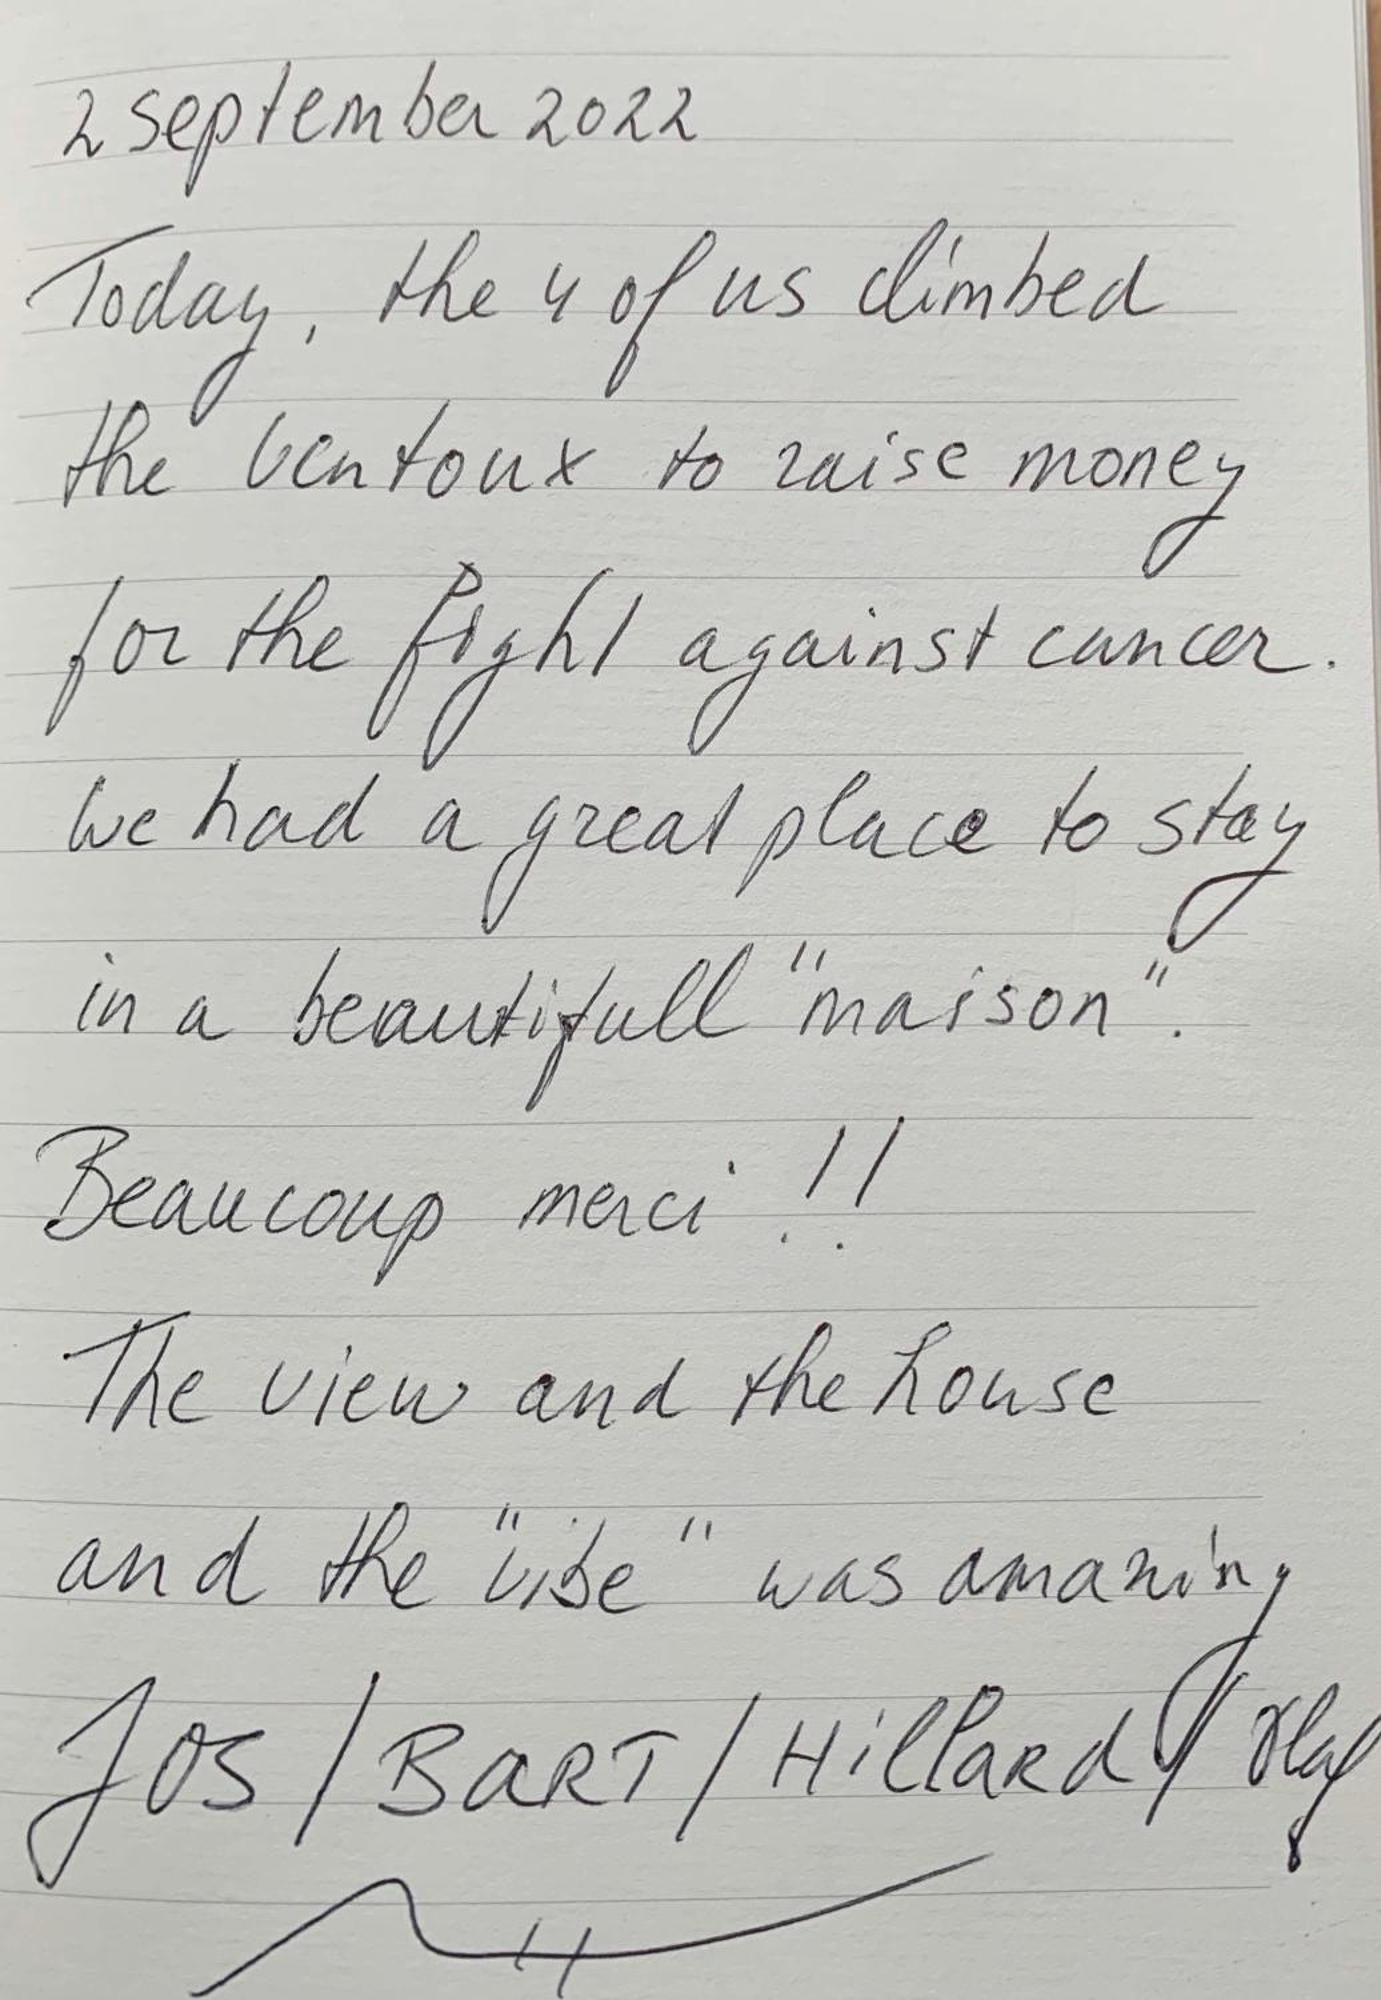 2 september 2022
Today, the 4 of us climbed
the Ventoux to raise money
for the fight against cancer.
We had a great place to stay
in a beautifull "maison".
Beaucoup merci !!
The view and the house
and the "vibe" was amazing
Jos / BART / HillARd / Olaf